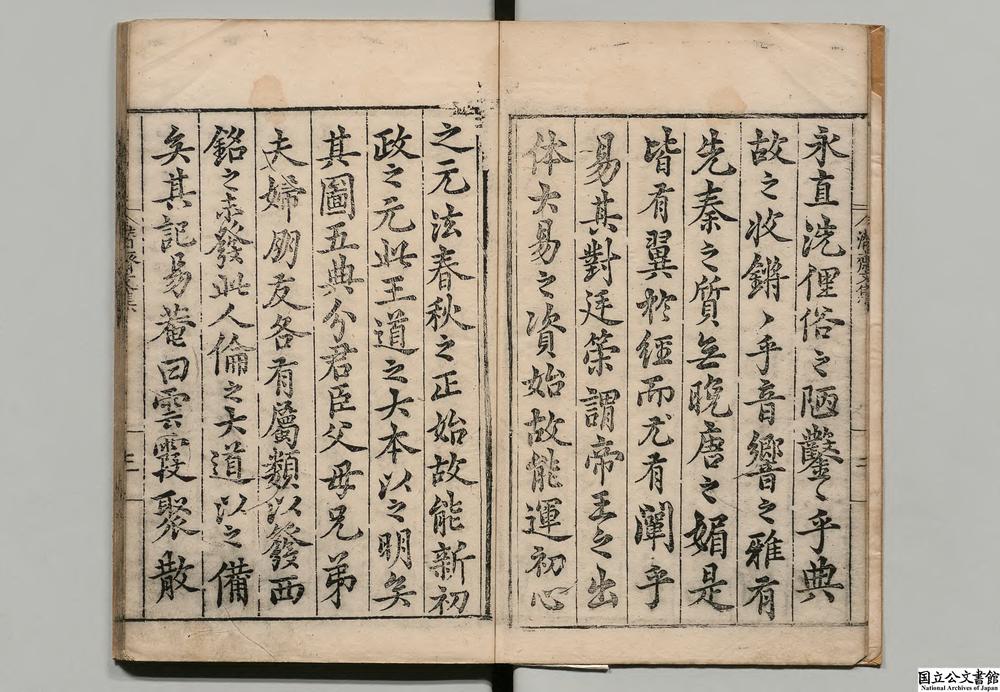 永直洗俚俗之陋鑿〻乎典
故之收鏘〻乎音響之雅有
先秦之質無晚唐之媚是
皆有翼於經而尤有闡乎
易其對廷策謂帝王之出
体大易之資始故能運初心
之元法春秋之正始故能新初
政之元此王道之大本以之明矣
其圖五典分君臣父母兄弟
夫婦朋友各有屬類以發西
銘之未發此人倫之大道以之備
矣其記易菴曰雲霞聚散
国立公文書館
National Archives of Japan